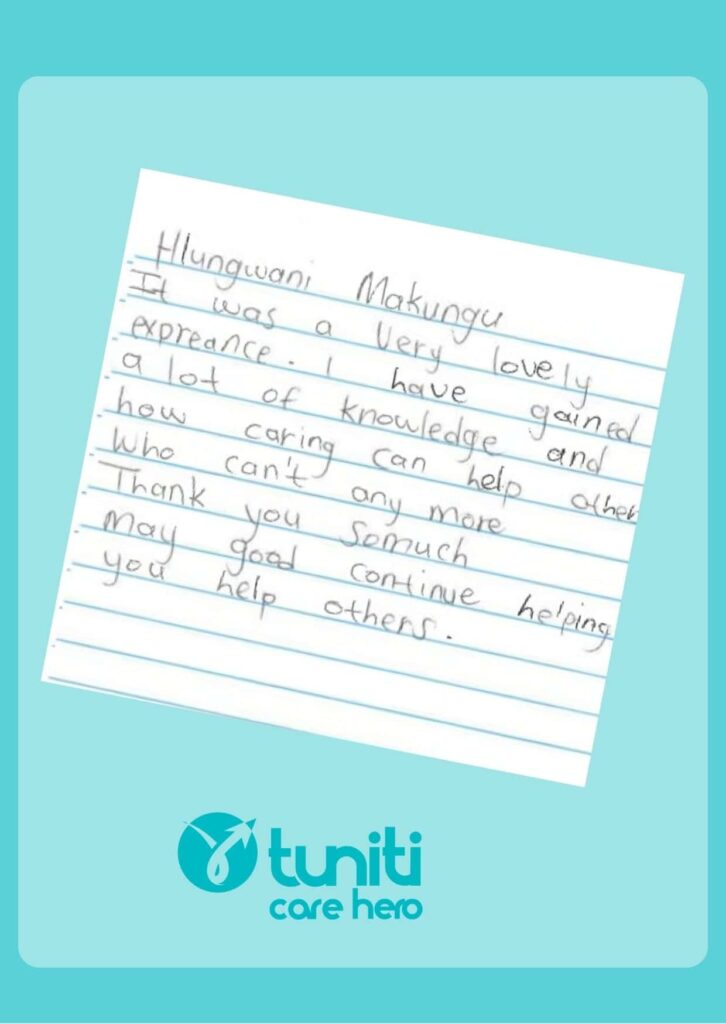 Hlungwani Makungu
It was a very lovely
expreance. I have gained
a lot of knowledge and
how caring can help other
who can't any more
Thank you somuch
May good continue helping
you help others.
tuniti
care hero